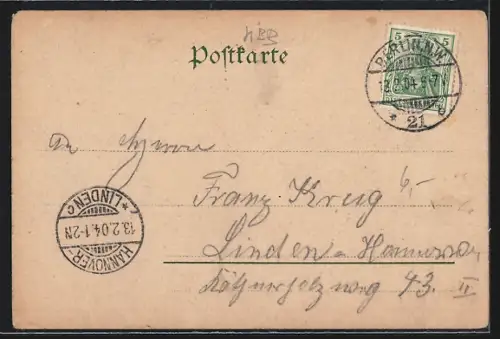 Postkarte
5 5
BERLIN N.W.
12.2.04.
* 21
An Herrn
Franz Krug
Linden-Hannover
43. II
HANNOVER-
13.2.04.1-2N
* LINDEN c